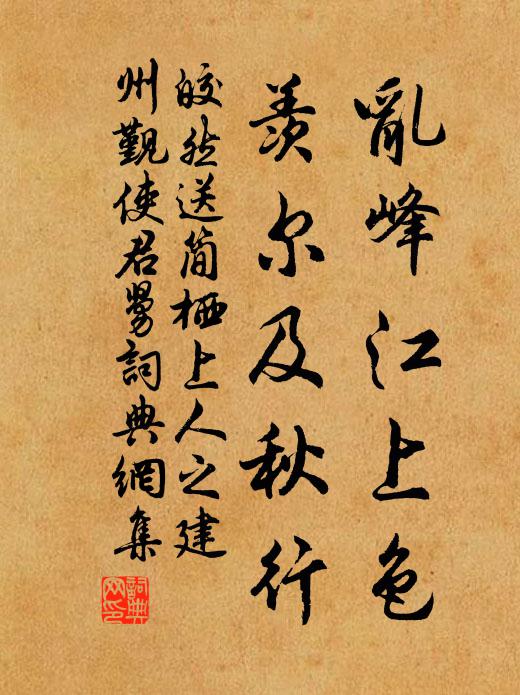 亂峰江上色
羨尔及秋行
皎然送簡栖上人之建
州覲使君舅詞典網集
詞典网印